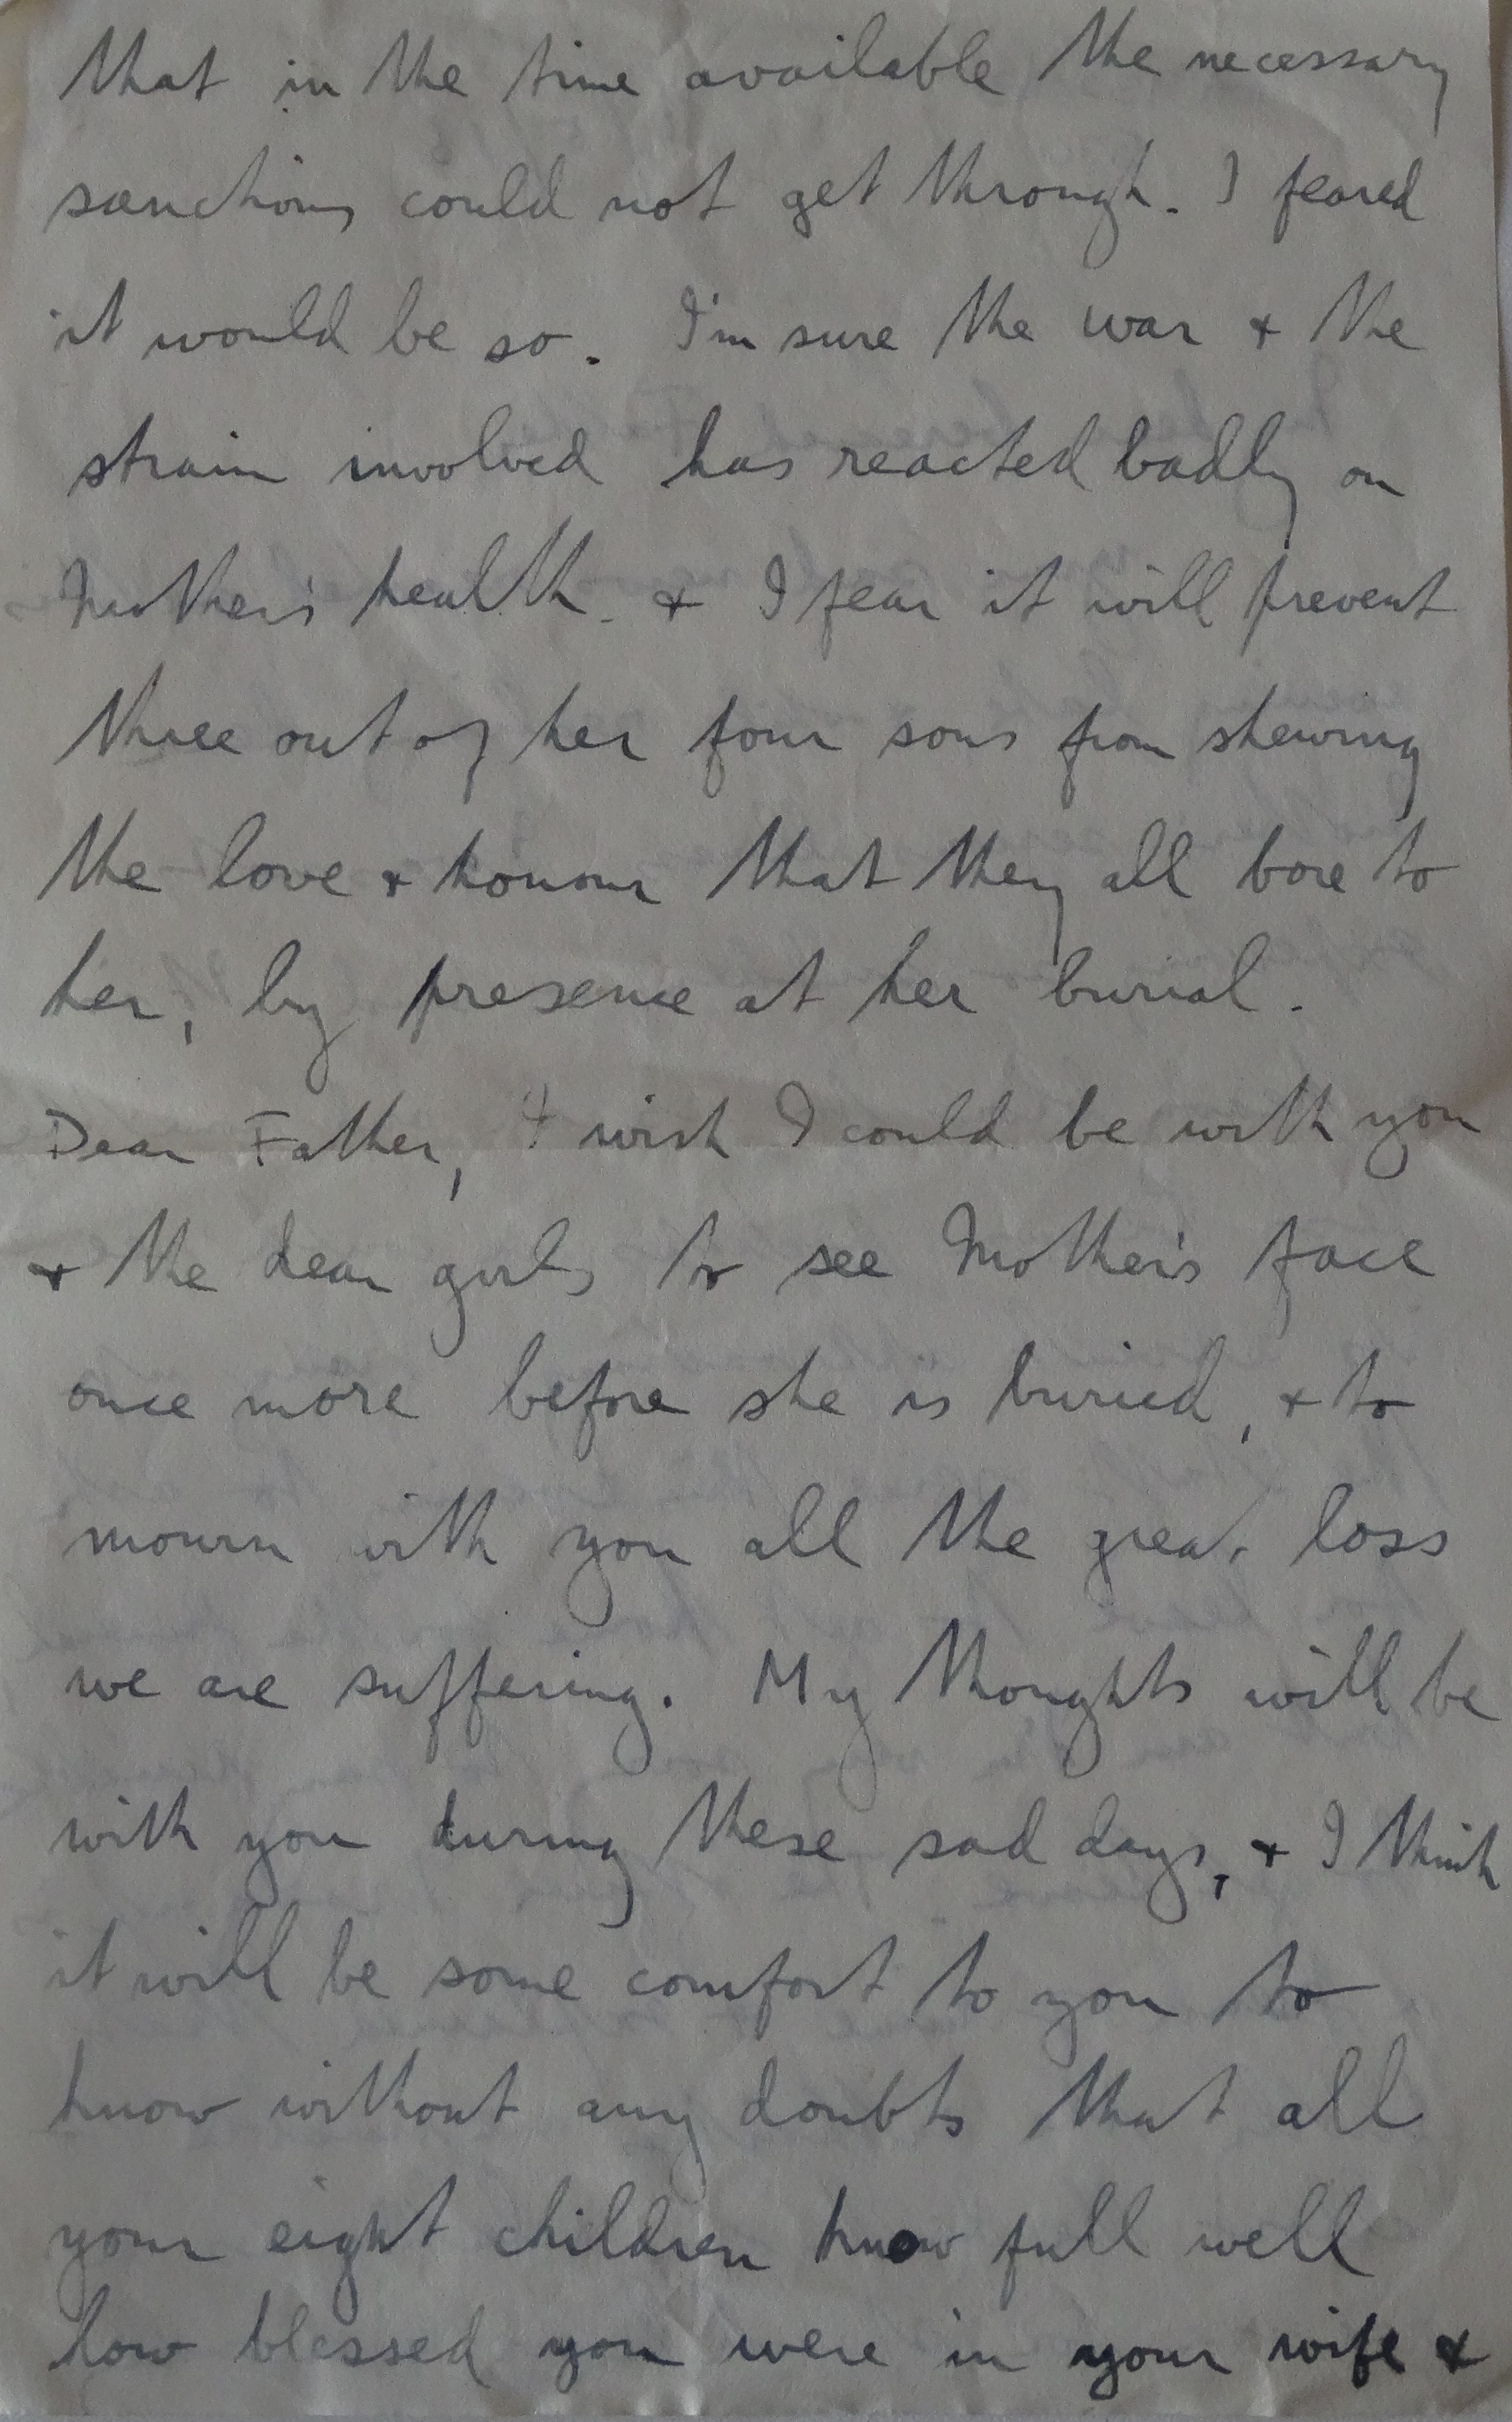 that in the time available the necessary
sanctions could not get through. I feared
it would be so. I'm sure the war & the
strain involved has reacted badly on
Mother's health. & I fear it will prevent
three out of her four sons from shewing
the love & honour that they all bore to
her, by presence at her burial.
Dear Father, I wish I could be with you
& the dear girls to see Mother's face
once more before she is buried, & to
mourn with you all the great loss
we are suffering. My thoughts will be
with you during these sad days, & I think
it will be some comfort to you to
know without any doubts that all
your eight children know full well
how blessed you were in your wife &